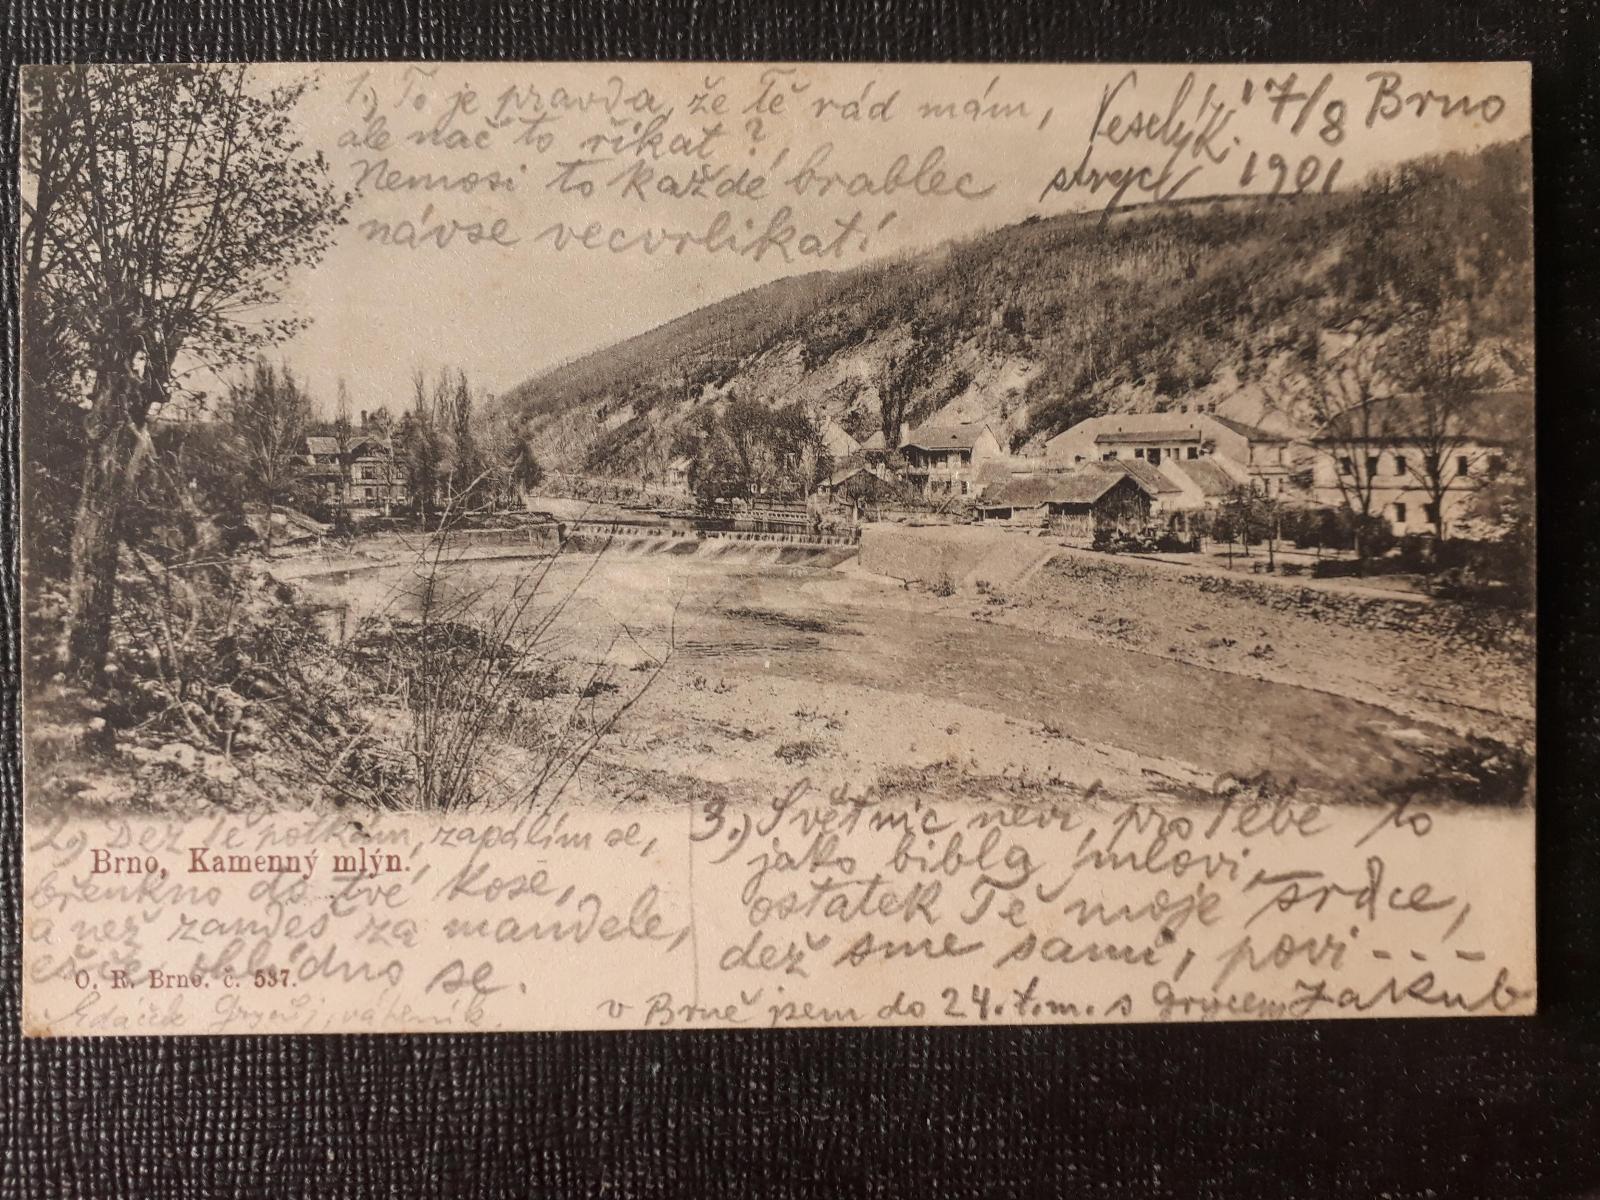 1.) To je pravda, že Tě rád mám,
ale nač to řikat?
Nemosi to každé brablec
návse vecvrlikat!
Veselý K. 17/8 Brno
strýc 1901
2.) Dež Tě potkám, zapálim se,
břenkno do tvé kose,
a než zandeš za mandele,
ešče ohlídno se.
Brno, Kamenný mlýn.
O. K. Brno. č. 537.
3.) Svět nic neví, pro Tebe to
jako bibla mlovi,
ostatek Tě moje srdce,
dež sme sami, povi - - -
v Brně jsem do 24. t. m. s Grycem Jakub